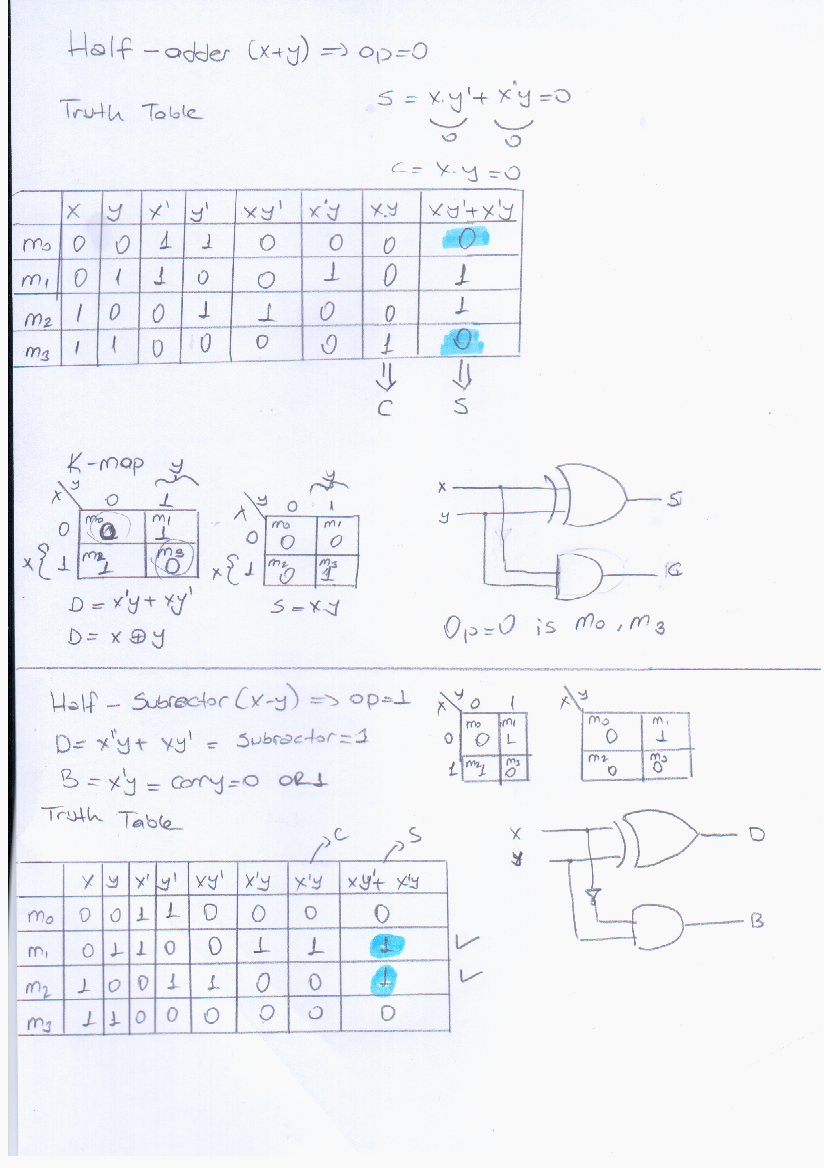 Half-adder (x+y) => op=0
Truth Table
S = x.y' + x'y = 0
0 0
C = x.y = 0
x y x' y' xy' x'y x.y xy'+x'y
m0 0 0 1 1 0 0 0 0
m1 0 1 1 0 0 1 0 1
m2 1 0 0 1 1 0 0 1
m3 1 1 0 0 0 0 1 0
C S
K-map y
x y 0 1
0 m0 0 m1 1
x{ 1 m2 1 m3 0
D = x'y + xy'
D = x ⊕ y
y
x y 0 1
0 m0 0 m1 0
x{ 1 m2 0 m3 1
S = x.y
x S
y C
Op=0 is m0, m3
Half - Subractor (x-y) => op=1
D = x'y + xy' = Subractor = 1
B = x'y = carry = 0 OR 1
Truth Table
x y 0 1
0 m0 0 m1 1
1 m2 1 m3 0
x y
m0 0 m1 1
m2 0 m3 0
x D
y B
C S
x y x' y' xy' x'y x'y xy'+x'y
m0 0 0 1 1 0 0 0 0
m1 0 1 1 0 0 1 1 1
m2 1 0 0 1 1 0 0 1
m3 1 1 0 0 0 0 0 0